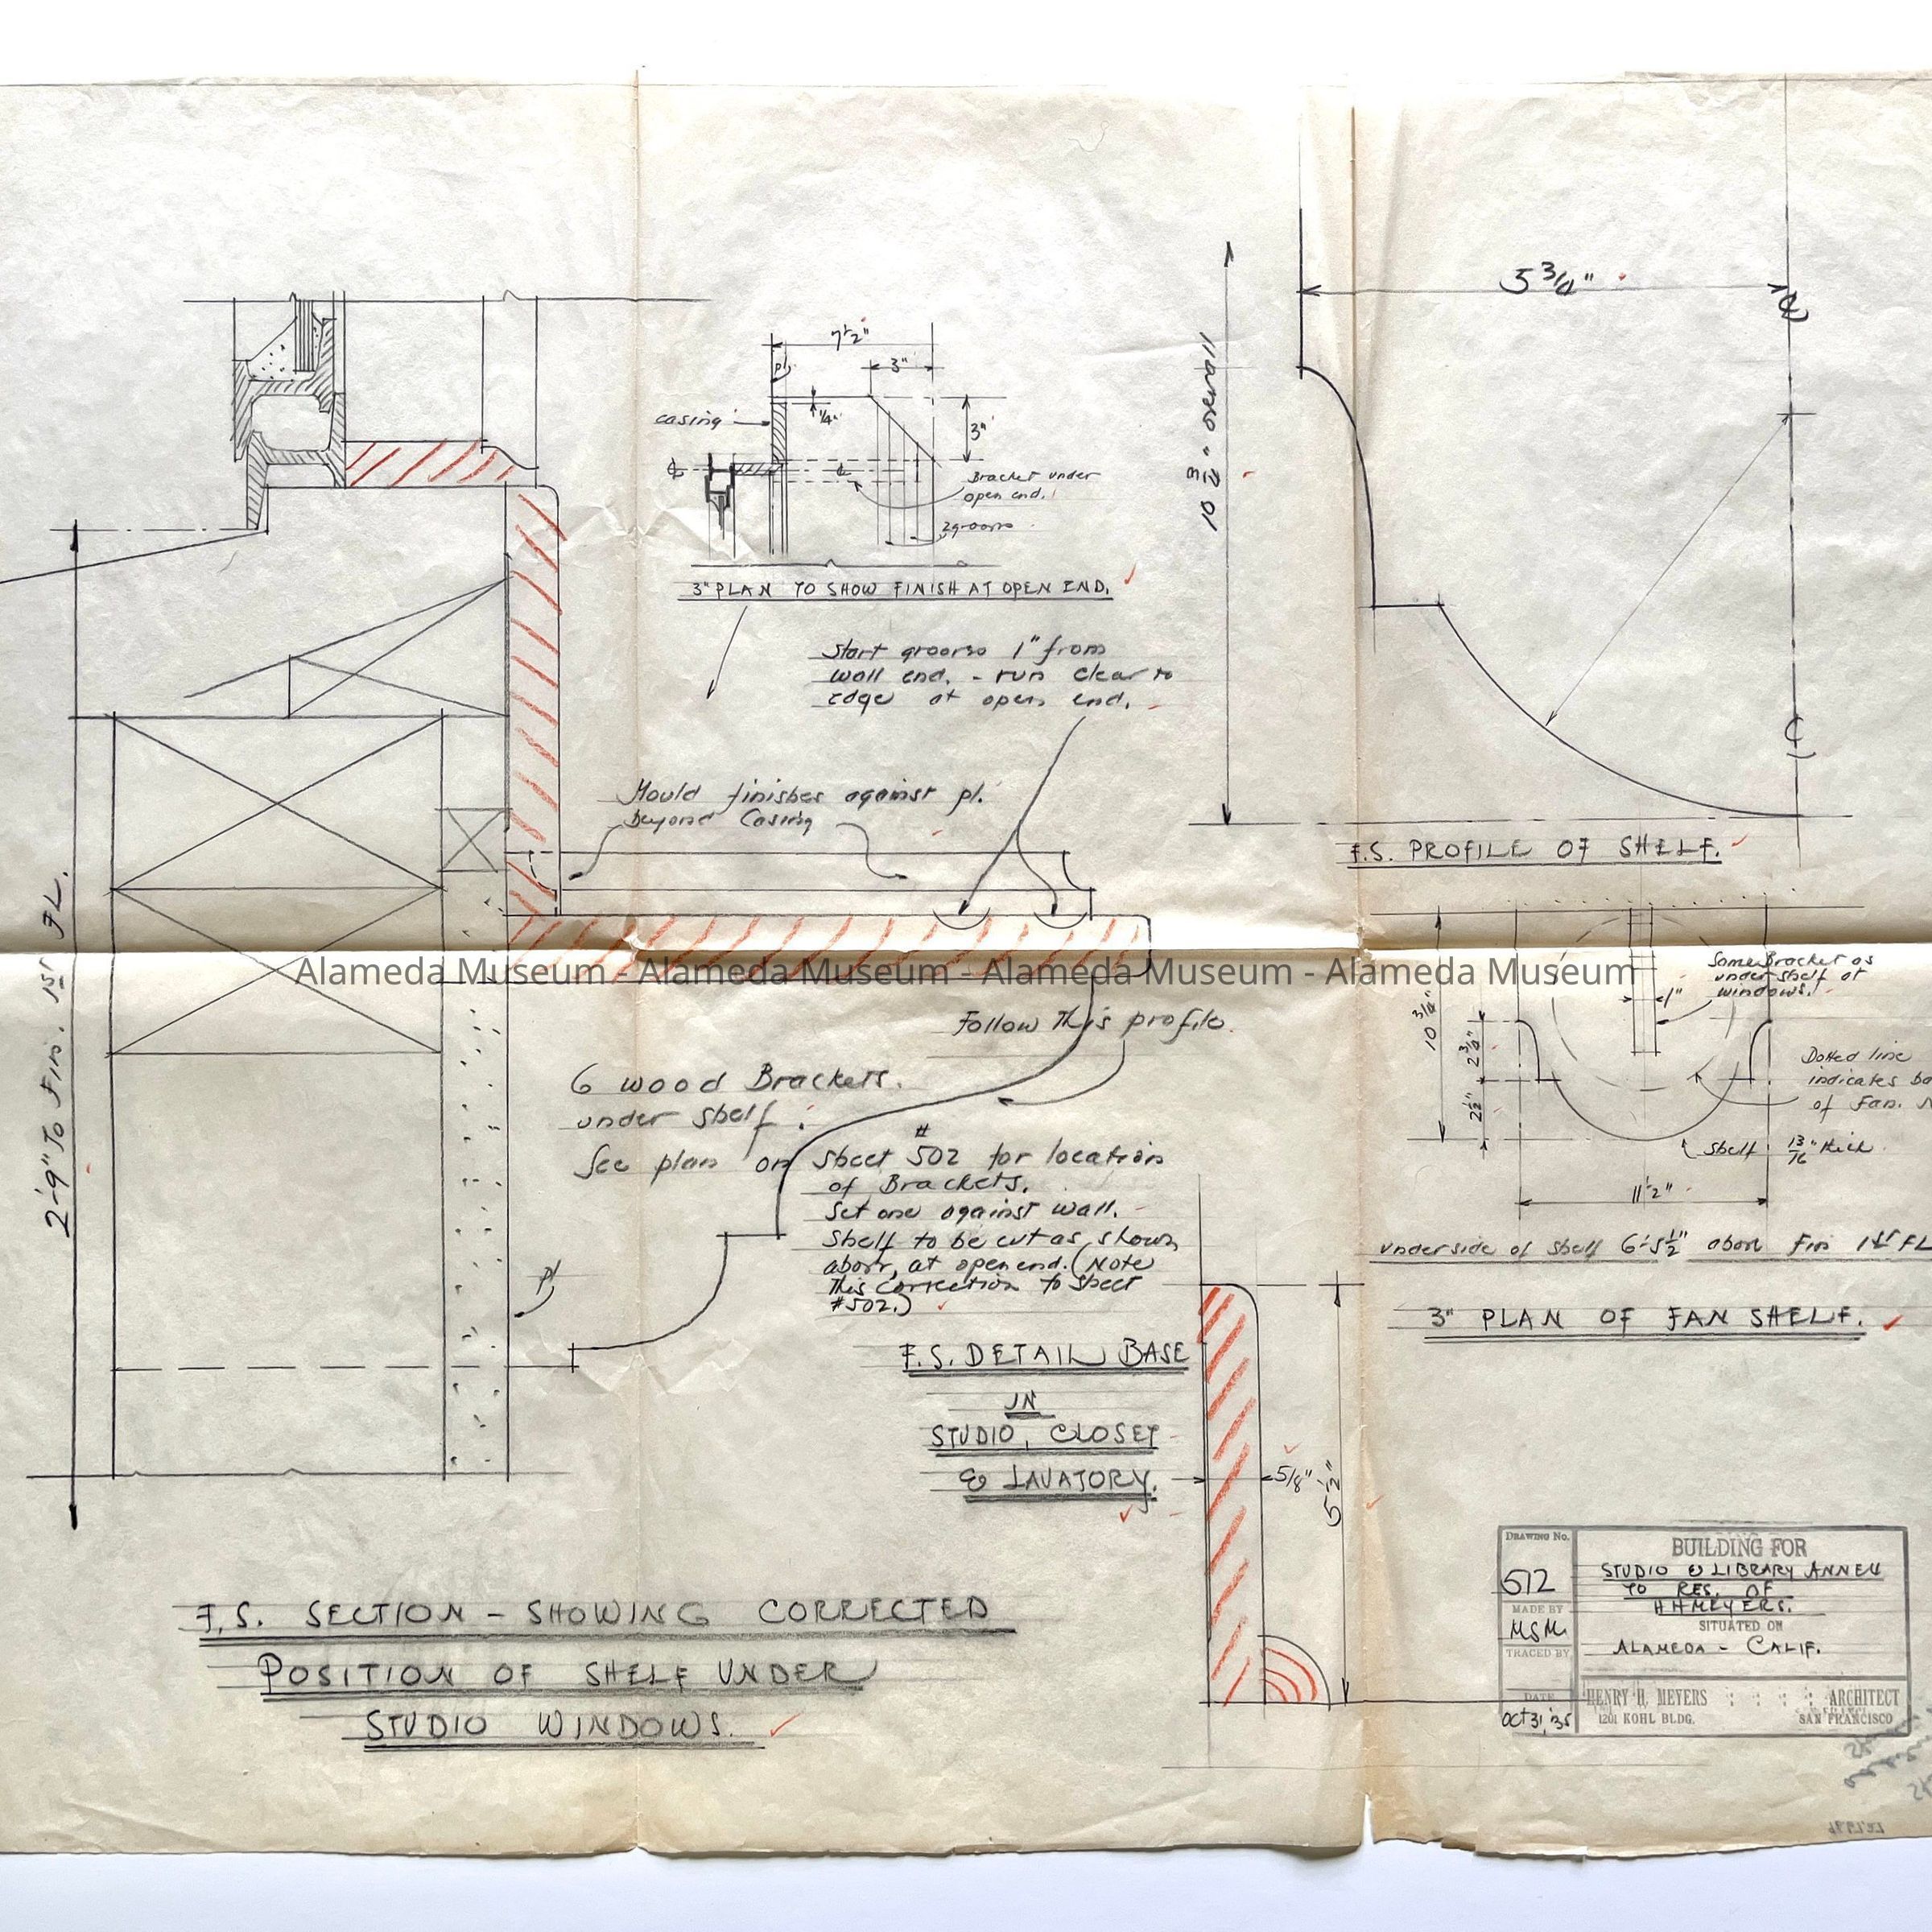 7 1/2"
pl.
3"
casing
1/4"
3"
Bracket under
open end.
2 grooves
3" PLAN TO SHOW FINISH AT OPEN END.
Start grooves 1" from
wall end. - run clear to
edge at open end.
Mould finishes against pl.
beyond Casing
2'-9" To Fin. 1st FL.
5 3/4"
10 3/4" overall
F.S. PROFILE OF SHELF.
Alameda Museum - Alameda Museum - Alameda Museum - Alameda Museum
Same Bracket as
under shelf at
windows.
1"
10 3/4"
2 3/4"
2 1/2"
Dotted line
indicates
of Fan.
Shelf 13/16" thick.
11 1/2"
underside of shelf 6'-5 1/2" above Fin 1st FL
3" PLAN OF FAN SHELF.
Follow This profile.
6 wood Brackets.
under shelf.
See plan on sheet #502 for location
of Brackets.
Set one against wall.
Shelf to be cut as shown
above, at open end. (Note
this correction to sheet
#502.)
pl
F.S. DETAIL BASE
IN
STUDIO, CLOSET
& LAVATORY.
5/8"
5 1/2"
F.S. SECTION - SHOWING CORRECTED
POSITION OF SHELF UNDER
STUDIO WINDOWS.
DRAWING No.
512
MADE BY
MSM
TRACED BY
DATE
Oct 31, '35
BUILDING FOR
STUDIO & LIBRARY ANNEX
TO RES. OF
H H MEYERS.
SITUATED ON
ALAMEDA - CALIF.
HENRY H. MEYERS : : : : ARCHITECT
1201 KOHL BLDG. SAN FRANCISCO